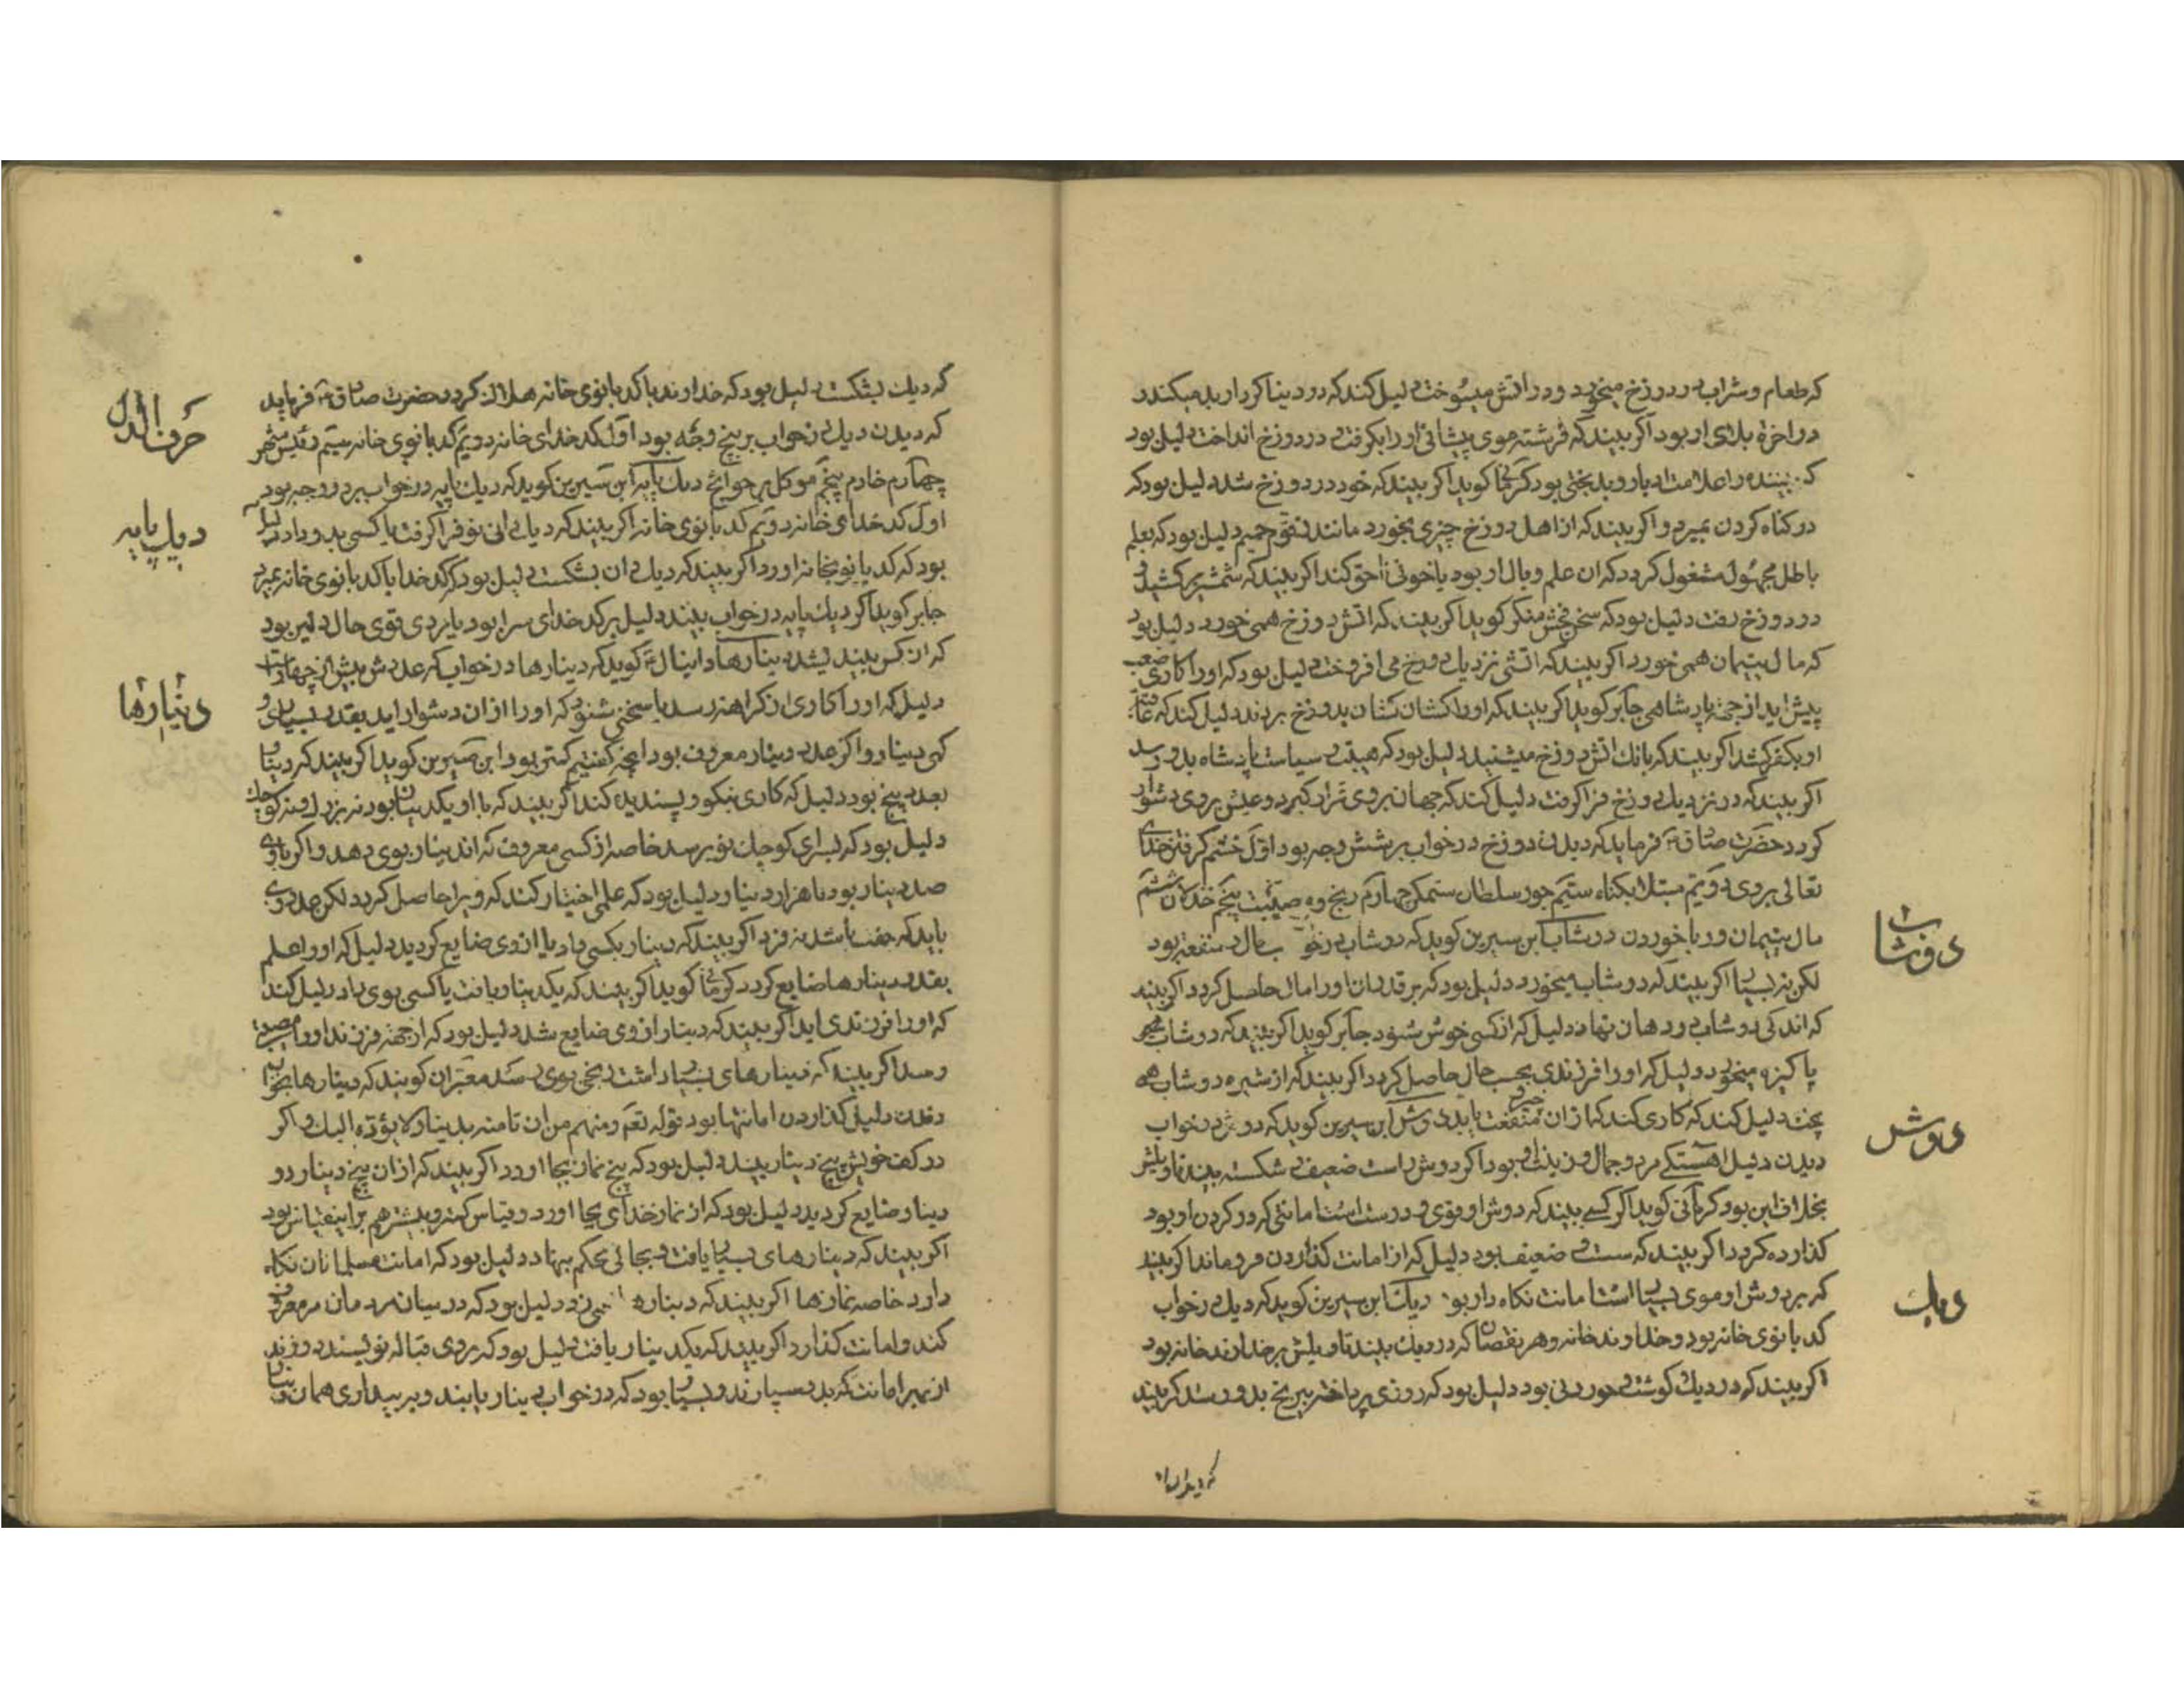 که طعام و شراب در دوزخ میخورد و در اتش میسوخت دلیل کند که در دنیا کردار بد میکند
در اخرة بلای او بود اکر بیند که فرشته موی پیشانی او را بکرفت و در دوزخ انداخت دلیل بود
که بیننده را علامت ادبار و بدبختی بود کرمانی کوید اکر بیند که خود در دوزخ شد دلیل بود که
در کناه کردن بمیرد و اکر بیند که از اهل دوزخ چیزی بخورد مانند زقوم حمیم دلیل بود که بعلم
باطل مجهول مشغول کردد که ان علم وبال او بود یا خونی ناحق کند اکر بیند که شمشیر کشید و
در دوزخ رفت دلیل بود که سخن فحش منکر کوید اکر بیند که اتش دوزخ همی خورد دلیل بود
که مال یتیمان همی خورد اکر بیند که اتشی نزدیک دوزخ می افروخت دلیل بود که او را کاری صعب
پیش اید از جهة پادشاهی جابر کوید اکر بیند که او را کشان کشان بدوزخ بردند دلیل کند که عاقبة
او بکفر کشد اکر بیند که بانک اتش دوزخ میشنید دلیل بود که هیبت و سیاست پادشاه بدو رسد
اکر بیند که در نزدیک دوزخ قرار کرفت دلیل کند که جهان بروی قرار کیرد و عیش بروی دشوار
کردد حضرت صادق ع فرماید که دیدن دوزخ در خواب بر شش وجه بود اول خشم کرفتن خدای
تعالی بر وی دویم مبتلا بکناه سیم جور سلطان ستمکر چهارم رنج و مصیبت پنجم خذلان ششم
مال یتیمان و ربا خوردن دوشاب ابن سیرین کوید که دوشاب در خواب مال و منفعة بود
لکن نه بسیار اکر بیند که دوشاب میخورد دلیل بود که بر قدر ان او را مال حاصل کردد اکر بیند
که اندکی دوشاب در دهان نهاد دلیل که از کسی خوش شنود جابر کوید اکر بیند که دوشاب
پاکیزه میخورد دلیل که او را فرزندی بحسب حال حاصل کردد اکر بیند که از شیره دوشاب همی
پخت دلیل کند که کاری کند که از ان خیر و منفعت یابد دوش ابن سیرین کوید که دوش در خواب
دیدن دلیل اهستکی مرد و جمال و زینت او بود اکر دوش راست ضعیف و شکسته بیند تاویلش
بخلاف این بود کرمانی کوید اکر کسی بیند که دوش او قوی و درست است امانتی که در کردن او بود
کذارده کردد اکر بیند که سست و ضعیف بود دلیل که از امانت کذاردن فرو ماند اکر بیند
که بر دوش او موی بسیار است امانت نکاه دار بود دیک ابن سیرین کوید که دیک در خواب
کدبانوی خانه بود و خداوند خانه و هر نقصان که در دیک بیند تاویلش بر خداوند خانه بود
اکر بیند که در دیک کوشت و خوردنی بود دلیل بود که روزی پرداخته بیرنج بدو رسد اکر بیند
دوشاب
دوش
دیک
که دیک بشکست دلیل بود که خداوند یا کدبانوی خانه هلاک کردد حضرت صادق ع فرماید
که دیدن دیک در خواب بر پنج وجه بود اول کدخدای خانه دویم کدبانوی خانه سیم رئیس شهر
چهارم خادم پنجم موکل بر حوایج دیک پایه ابن سیرین کوید که دیک پایه در خواب بر دو وجه بود
اول کدخدای خانه دویم کدبانوی خانه اکر بیند که دیک دانی نو فرا کرفت یا کسی بدو داد دلیل
بود که کدبانو بخانه اورد اکر بیند که دیک دان بشکست دلیل بود که کدخدا یا کدبانوی خانه بمیرد
جابر کوید اکر دیک پایه در خواب بیند دلیل بر کدخدای سرا بود یا مردی قوی حال دلیر بود
که ان کس بیند دینارها دانیال ع کوید که دینارها در خواب که عددش بیش از چهار است
دلیل که او را کاری از کراهت رسد یا سخنی شنود که او را از ان دشوار اید بقدر بسیاری و
کمی دینار و اکر عدد دینار معروف بود انچه کفتیم کمتر بود ابن سیرین کوید اکر بیند که دینار
بعدد پنج بود دلیل که کاری نیکو و پسندیده کند اکر بیند که با او یک دینار بود نه بزرک و نه کوچک
دلیل بود که برای کوچک نو برسد خاصه از کسی معروف که اند دینار بوی دهد و اکر با وی
صد دینار بود یا هزار دینار دلیل بود که علمی اختیار کند که ویرا حاصل کردد لکن عدد وی
باید که جفت باشد نه فرد اکر بیند که دینار بکسی داد یا از وی ضایع کردید دلیل که او را علم
بقدر دینارها ضایع کردد کرمانی کوید اکر بیند که یک دینار یافت یا کسی بوی داد دلیل کند
که او را فرزندی اید اکر بیند که دینار از وی ضایع شد دلیل بود که از جهة فرزند او را مصیبة
رسد اکر بیند که دینارهای بسیار داشت رنجی بوی رسد معبران کویند که دینارها بخواب
دیدن دلیل کذاردن امانتها بود قوله تعم ومنهم من ان تامنه بدینار لا یؤده الیک و اکر
در کف خویش پنج دینار بیند دلیل بود که پنج نماز بجا اورد اکر بیند که از ان پنج دینار دو
دینار ضایع کردید دلیل بود که از نماز خدای بجا اورد و قیاس کمتر و بیشتر هم بر این قیاس بود
اکر بیند که دینارهای بسیار یافت و بجائی محکم بنهاد دلیل بود که امانت مسلمانان نکاه
دارد خاصه نمازها اکر بیند که دینارها دلیل بود که در میان مردمان مر معروف
کند و امانت کذارد اکر بیند که یک دینار یافت دلیل بود که بروی قباله نویسند
از بهر امانت که بدو سپارند و بسیار بود که در خواب دینار یابند و ببیداری همان دینار
حرف الدال
دیک پایه
دینارها